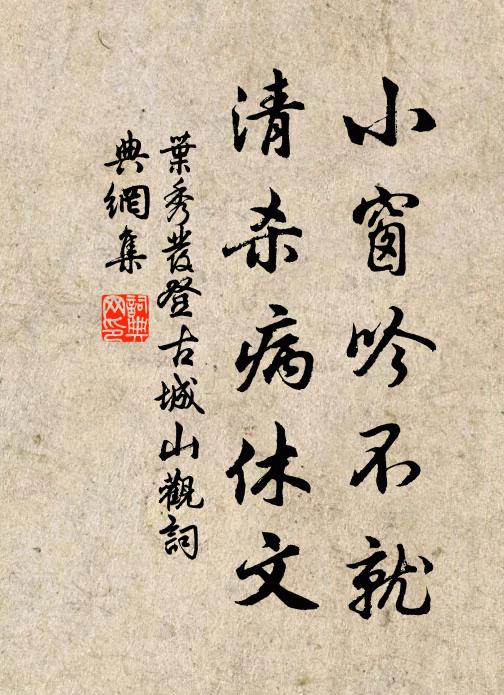 小窗吟不就
清杀病休文
葉秀發登古城山觀詞
典網集
詞典网印